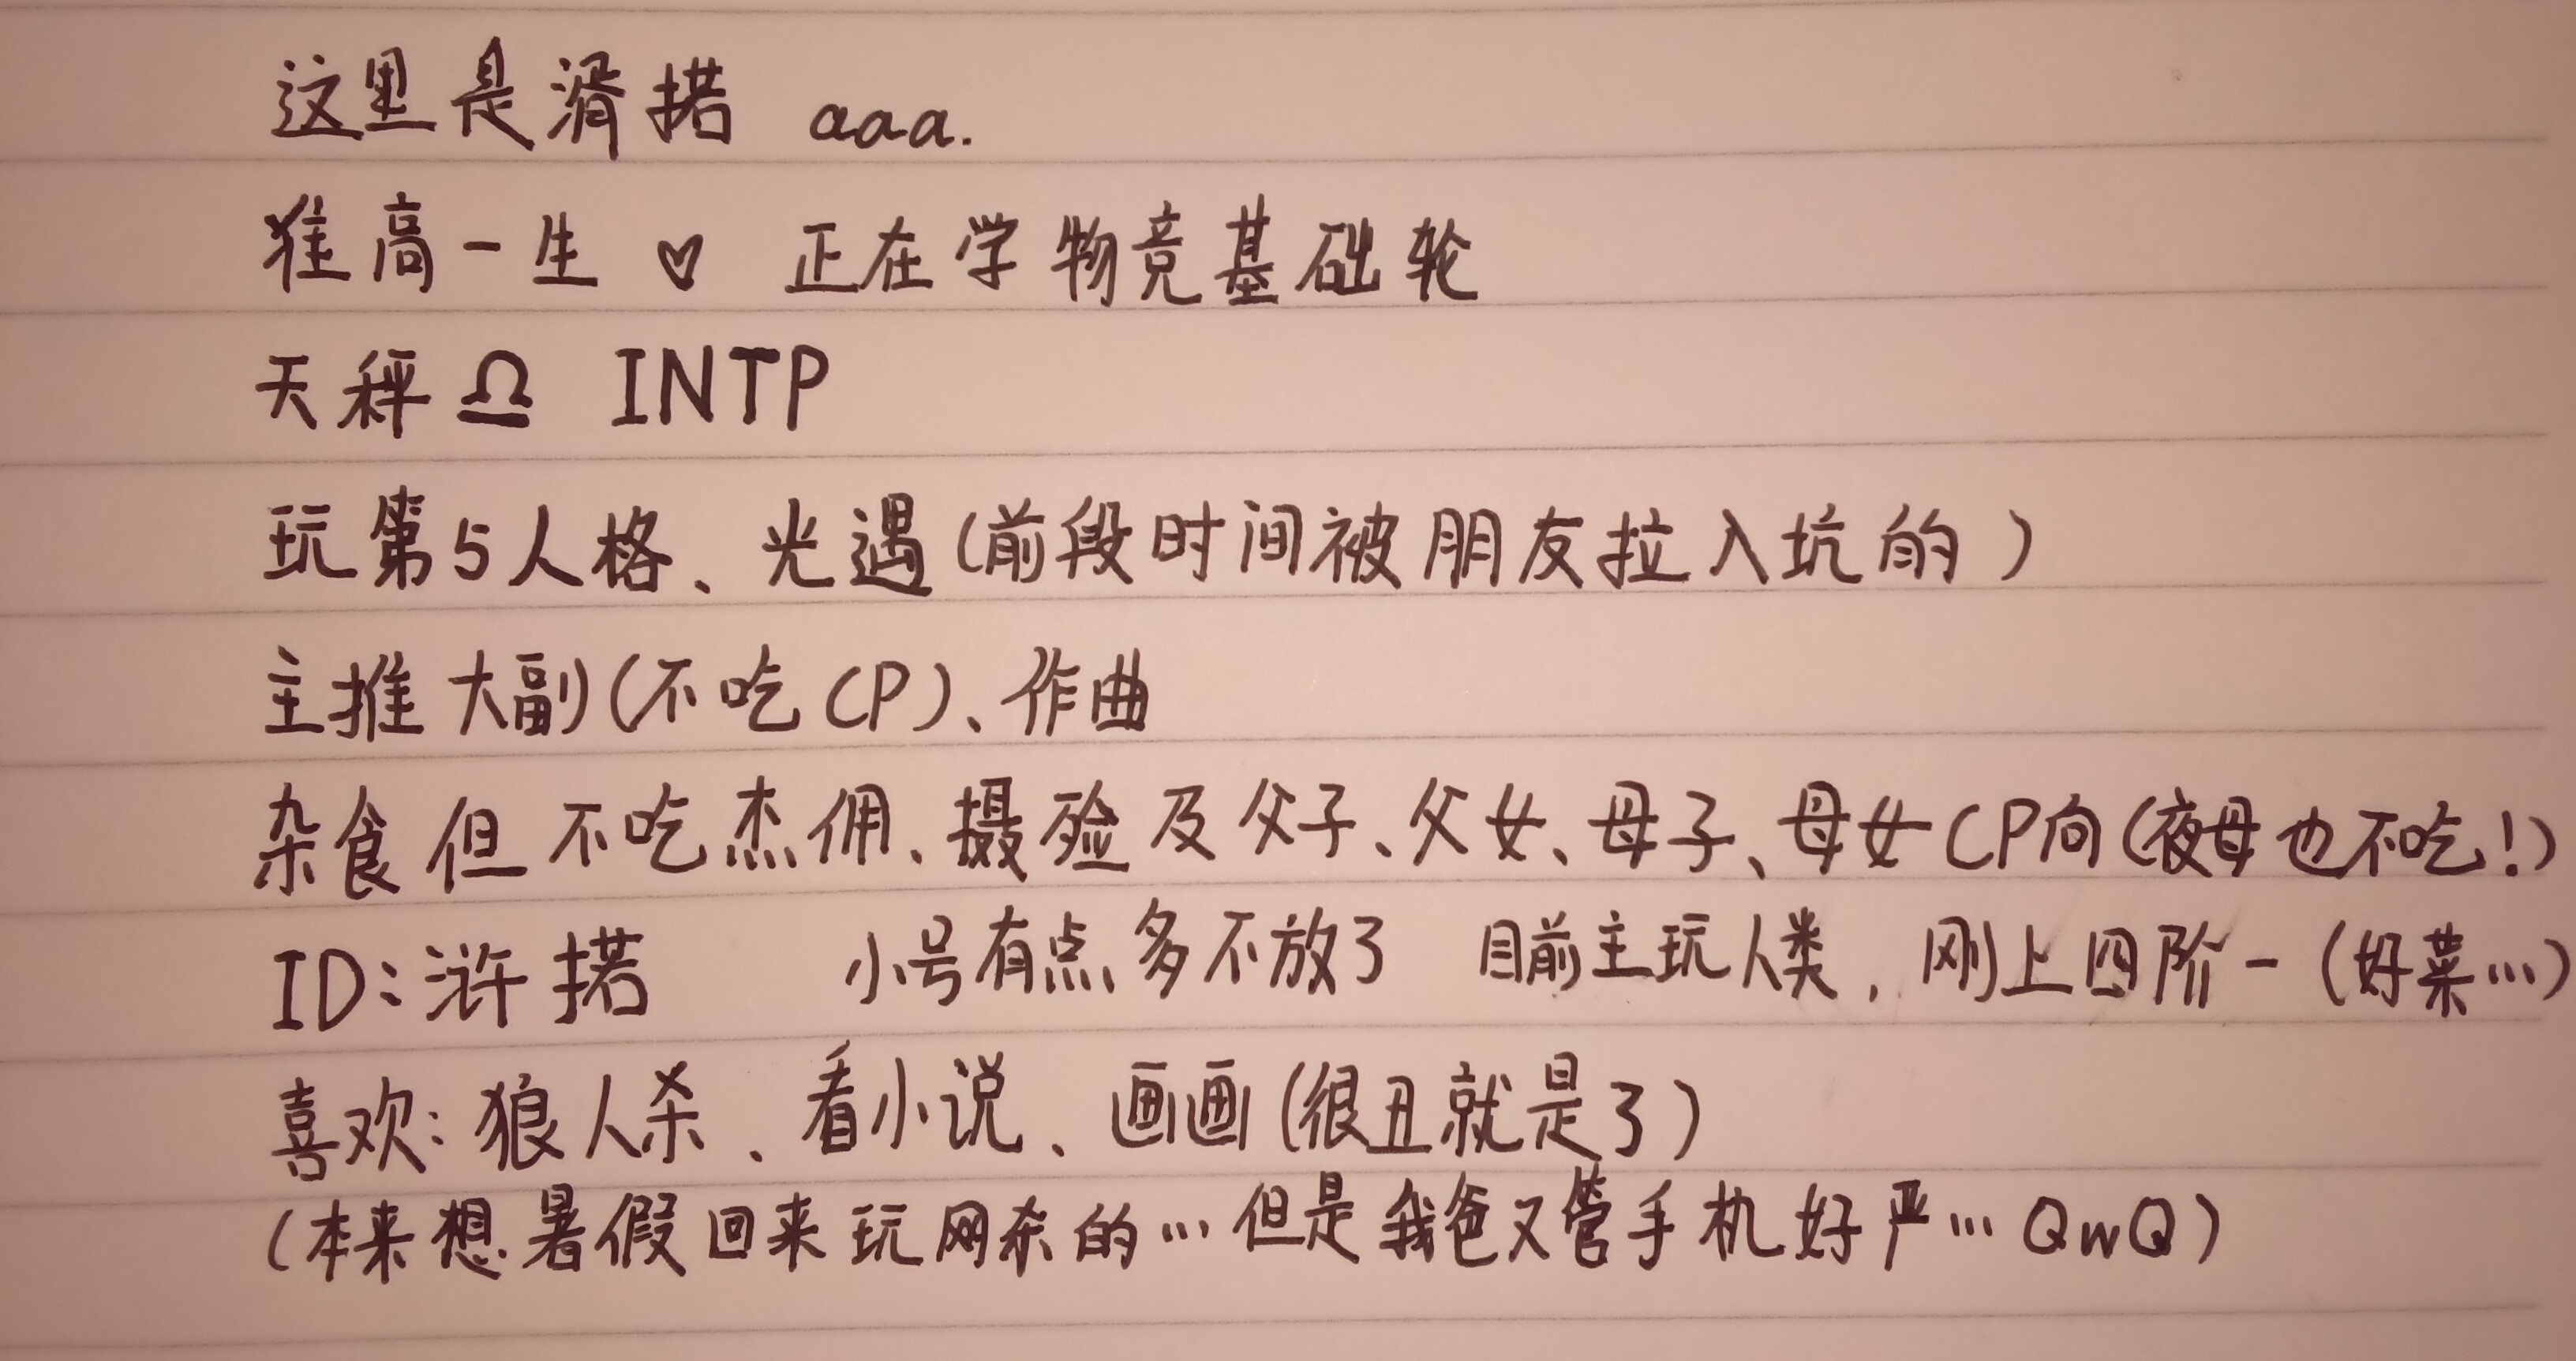 这里是滑掿 aaa.
准高一生 ♡ 正在学物竞基础轮
天秤♎ INTP
玩第5人格、光遇(前段时间被朋友拉入坑的)
主推大副(不吃CP)、作曲
杂食但不吃杰佣、摄殓及父子、父女、母子、母女CP向(夜母也不吃!)
ID:浒掿 小号有点多不放了 目前主玩人类,刚上四阶一(好菜…)
喜欢:狼人杀、看小说、画画(很丑就是了)
(本来想暑假回来玩网杀的…但是我爸又管手机好严…QwQ)